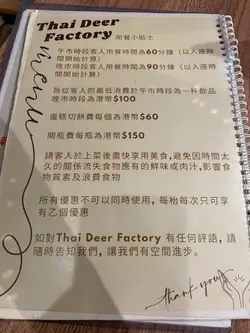 Thai Deer
Factory 用餐小貼士
menu
午市時段客人用餐時間為60分鐘（以入座時
間開始計算）
晚市時段客人用餐時間為90分鐘（以入座時
間開始計算）
每位客人的最低消費於午市時段為一杯飲品
晚市時段為港幣$100
蛋糕切餅費每個為港幣$60
開瓶費每瓶為港幣$150
請客人於上菜後盡快享用美食,避免因時間太
久的關係流失食物應有的鮮味或肉汁,影響食
物質素及浪費食物
所有優惠不可以同時使用, 每枱每次只可享
有乙個優惠
如對Thai Deer Factory 有任何評語, 請
隨時告知我們, 讓我們有空間進步。
thank you